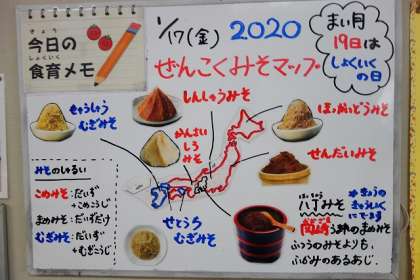 きょう
今日の
しょくいく
食育メモ
1/17(金) 2020
ぜんこくみそマップ
まい月
19日は
しょくいく
の日
きゅうしゅう
むぎみそ
しんしゅうみそ
かんさい
しろ
みそ
ほっかいどうみそ
せんだいみそ
せとうち
むぎみそ
みそのしゅるい
こめみそ:だいず
+こめこうじ
まめみそ:だいずだけ
むぎみそ:だいず
+むぎこうじ
八丁みそ
ふつうのみそよりも、
ふかみのあるあじ。